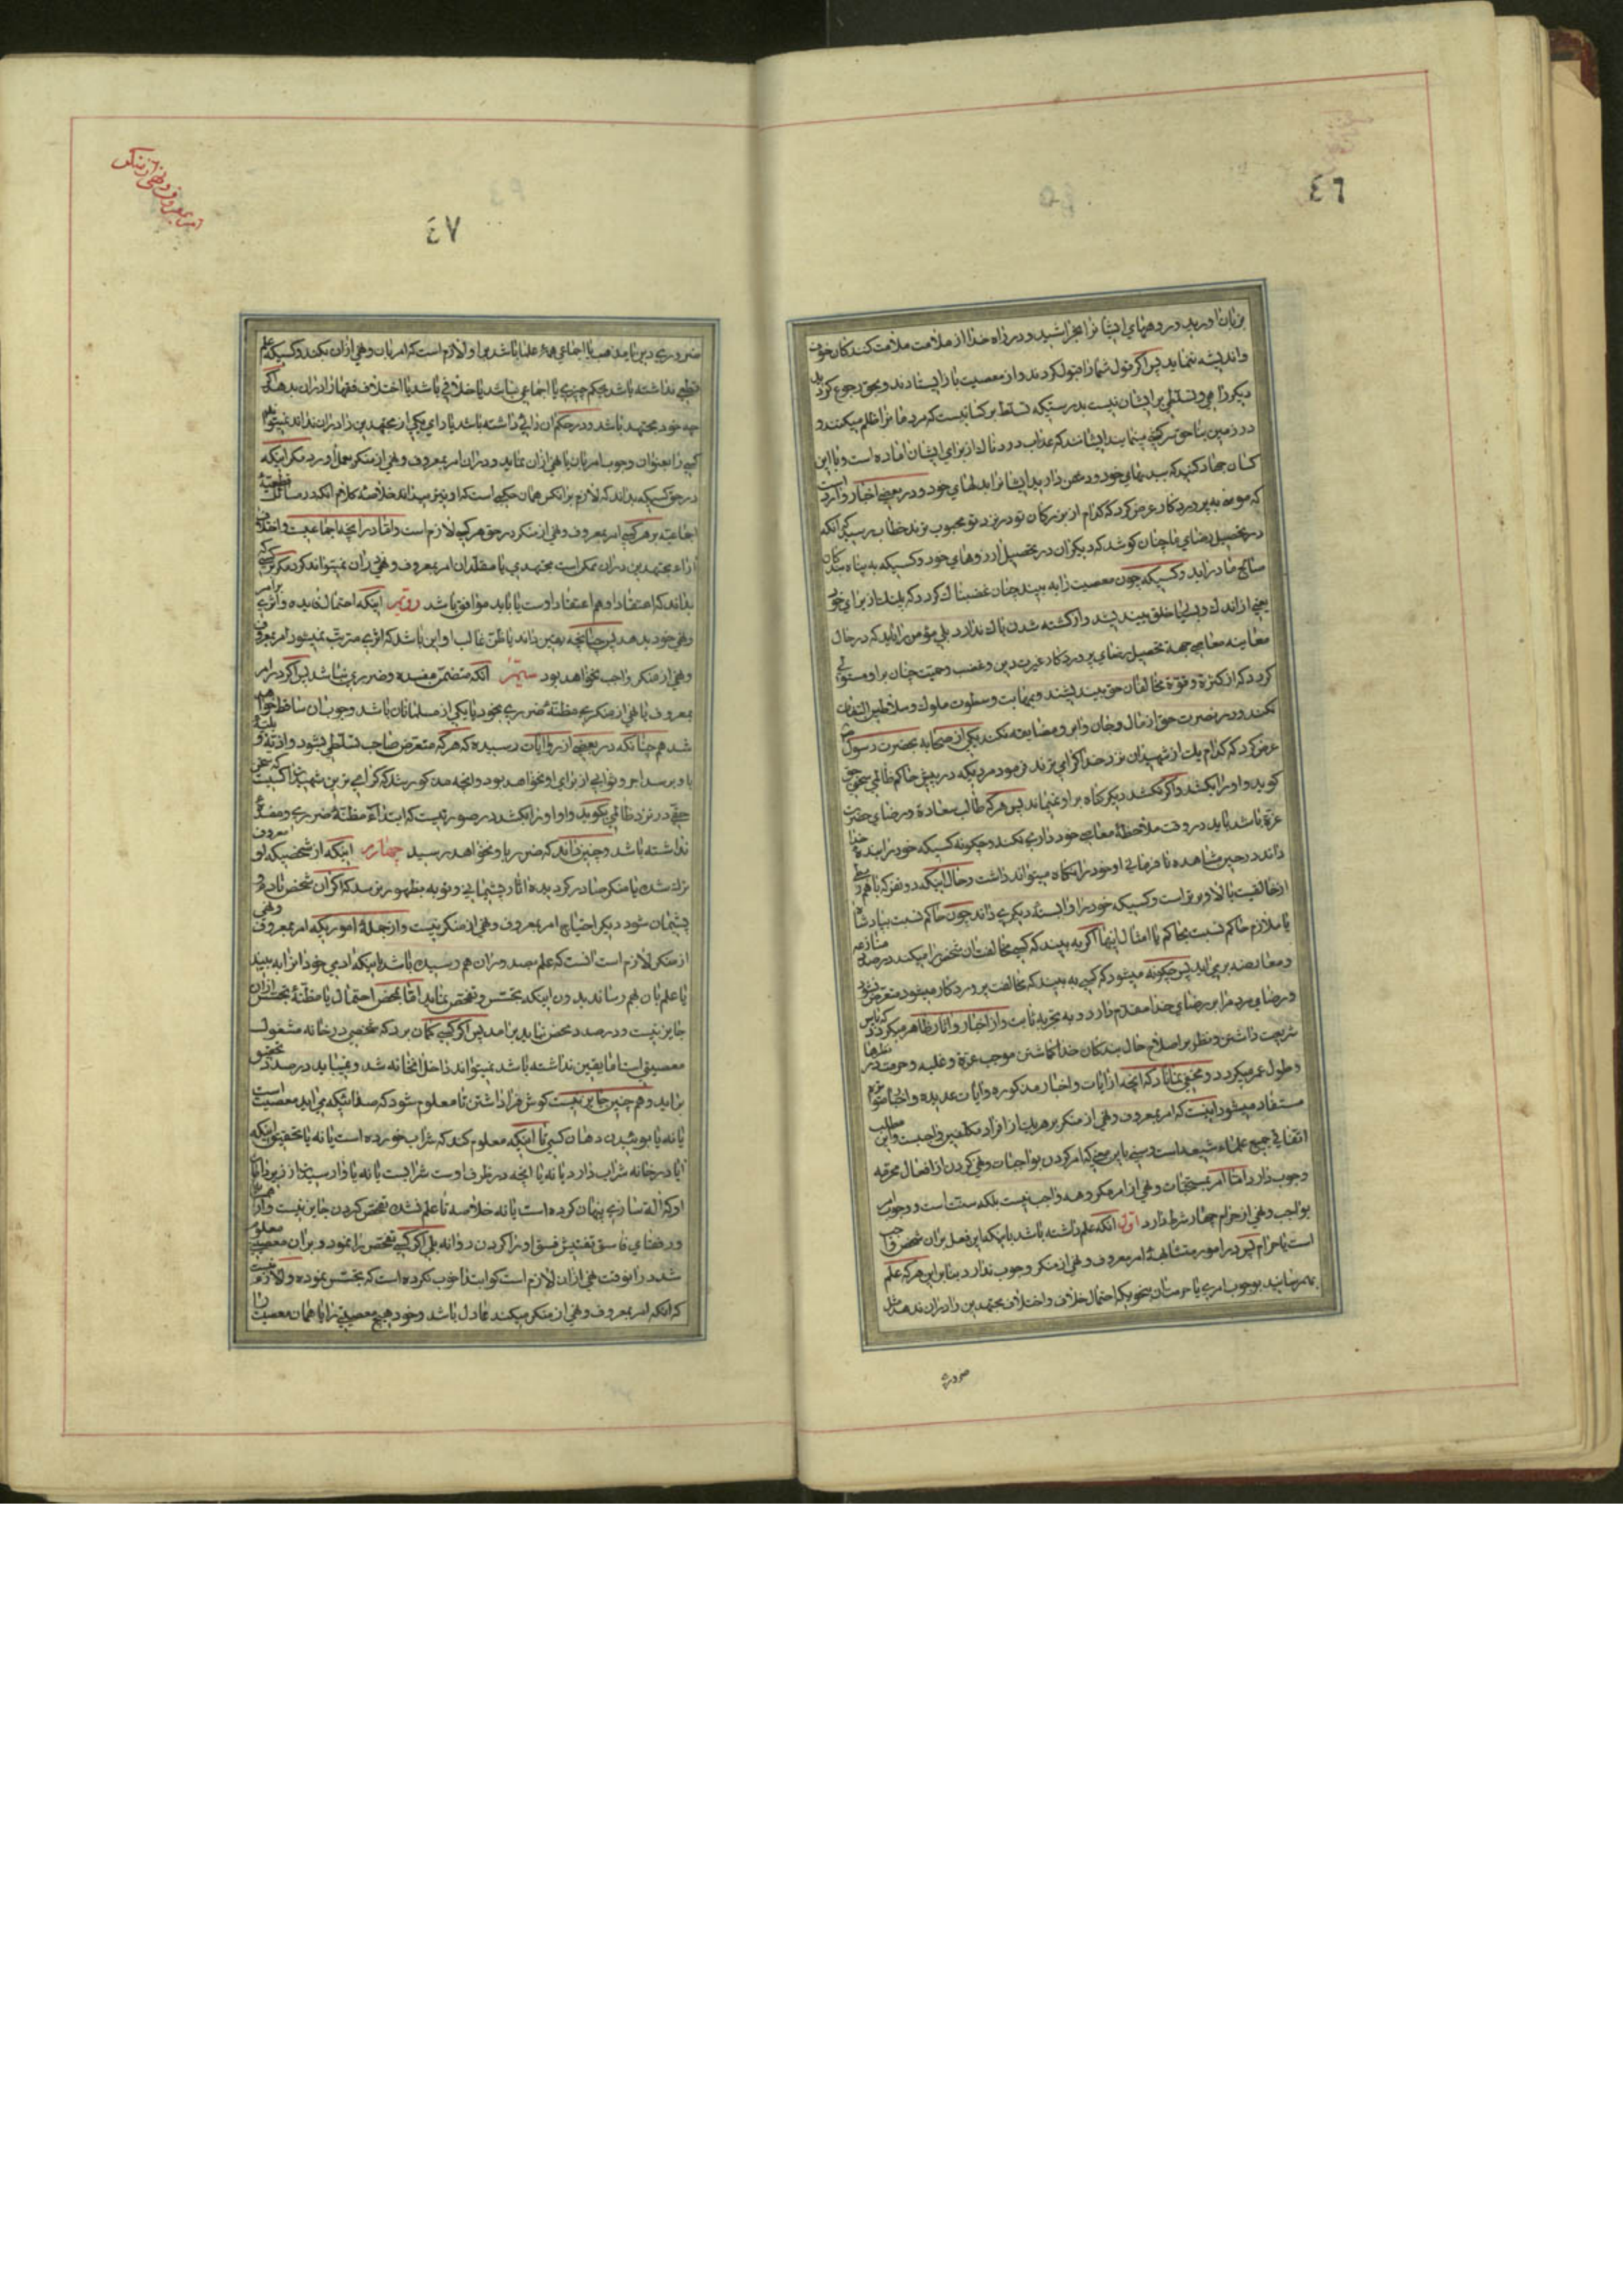 ٤٦
بزبان اورید و رویهای ایشانرا بخراشید و در راه خدا از ملامت ملامت کنندگان خوف
و اندیشه منماید پس اگر قول شما را قبول کردند و از معصیت باز ایستادند و بحق رجوع کردند
دیگر راهی و تسلطی بر ایشان نیست بدرستیکه تسلط بر کسانیست که مردمانرا ظلم میکنند و
در زمین بناحق سرکشی مینمایند ایشانند که عذاب دردناک از برای ایشان اماده است و با این
کسان جهاد کنید که ببدنهای خود و دشمن دارید ایشانرا بدلهای خود و در بعضی اخبار وارد است
که موسی به پروردگار عرض کرد که کدام از بندگان تو در نزد تو محبوب ترند خطاب رسید آنکه
در تحصیل رضای ما چنان کوشد که دیگران در تحصیل ارزوهای خود و کسیکه به پناه بندگان
صالح ما دراید و کسیکه چون معصیت را به بیند چنان غضبناک گردد که پلنگ از برای خود
یعنی از اندک و بسیاری خلق نیندیشد و از کشته شدن باک ندارد بلی مؤمن را باید که در حال
معاینه معاصی جهة تحصیل رضای پروردگار غیرت دین و غضب و حمیت چنان بر او مستولی
گردد که از کثرة و قوة مخالفان حق نیندیشد و بمهابت و سطوت ملوک و سلاطین التفات
نکند و در نصرت حق از مال و جان و ابرو مضایقه نکند یکی از صحابه بحضرت رسول ص
عرض کرد که کدام یک از شهیدان نزد خدا گرامی ترند فرمود مردیکه در پیش حاکم ظالمی سخن حق
گوید و او را بکشد و اگر نکشد دیگر گناه بر او نمیماند پس هرکه طالب سعادة و رضای حضرت
عزة باشد باید در وقت ملاحظهٔ معاصی خودداری نکند و چگونه کسیکه خود را بندهٔ خدا
داند در حین مشاهده نافرمانی او خود را نگاه میتواند داشت و حال اینکه دو نفر که با هم ربطی
یا ملازم حاکم نسبت بحاکم یا امثال اینها اگر به بیند که کسی مخالفت ان شخص را میکند در صدد منازعه
و معارضه برمی اید پس چگونه میشود که کسی به بیند که مخالفت پروردگار میشود متعرض نشود
و رضای مردم را بر رضای خدا مقدم دارد و به تجربه ثابت و از اخبار و اثار ظاهر میگردد که پاس
شریعت داشتن و نظر بر اصلاح حال بندگان خدا گماشتن موجب عزة و غلبه و حرمت در نظرها
و طول عمر میگردد و مخفی نماناد که انچه از ایات و اخبار مذکوره و ایات عدیده و اخبار متواتره
مستفاد میشود اینست که امر بمعروف و نهی از منکر بر هر یک از افراد مکلفین واجبست و این مطلب
اتفاقی جمیع علماء شیعه است و سنی باین معنی که امر کردن بواجبات و نهی کردن از افعال محرمه
وجوب دارد و اما امر بمستحبات و نهی از امر مکروهه واجب نیست بلکه سنت است و وجوب امر
بواجب و نهی از حرام چهار شرط دارد اول انکه علم داشته باشد باینکه این فعل بران شخص واجب
است یا حرام پس در امور متشابهه امر بمعروف و نهی از منکر وجوب ندارد بنابراین هرکه علم
بهم رسانید بوجوب امری یا حرمت ان بنحویکه احتمال خلاف و اختلاف مجتهدین را در ان ندهد مثل
ضروری
امر بمعروف و نهی از منکر
٤٧
ضروری دین یا مذهب یا اجماعی همهٔ علما باشد بر او لازم است که امر بان و نهی از ان بکند و کسیکه علم
قطعی نداشته باشد بحکم چیزی یا اجماعی نباشد یا خلافی باشد یا اختلاف فقها را در ان بدهد اگر
چه خود مجتهد باشد و در حکم ان رائی داشته باشد یا رای یکی از مجتهدین را در ان نداند نمیتواند
کسی را بعنوان وجوب امر بان یا نهی از ان نماید و در ان امر بمعروف و نهی از منکر بعمل اورد مگر اینکه
در حق کسیکه بداند که لازم بر انکس همان حکمی است که او نیز میداند خلاصهٔ کلام انکه در مسائل قطعیهٔ
اجماعیه بر هر کسی امر بمعروف و نهی از منکر در حق هر کسی لازم است و اما در انچه اجماعی نیست و اختلاف
اراء مجتهدین در ان ممکن است مجتهدی یا مقلدان امر بمعروف و نهی در ان نمیتواند کرد مگر کسی که
بداند که اعتقاد او هم اعتقاد اوست یا باید موافق باشد دویم اینکه احتمال فایده و اثری بر امر
و نهی خود بدهد پس چنانچه یقین داند یا ظن غالب او این باشد که اثری مترتب نمیشود امر بمعروف
و نهی از منکر واجب نخواهد بود سیم انکه متضمن مفسده و ضرری نباشد پس اگر در امر
بمعروف یا نهی از منکری مظنهٔ ضرری بخود یا یکی از مسلمانان باشد وجوب ان ساقط خواهد
شد هم چنانکه در بعضی از روایات رسیده که هرکه متعرض صاحب تسلطی بشود و اذیة و بلیهٔ
باو برسد اجر و ثوابی از برای او نخواهد بود و انچه مذکور شد که گرامی ترین شهیدان کسیست که سخن
حقی در نزد ظالمی بگوید و او او را بکشد در صورتیست که ابتداء مظنهٔ ضرری و مفسدهٔ
نداشته باشد و چنین داند که ضرر باو نخواهد رسید چهارم اینکه از شخصیکه او معروف
ترک شده یا منکر صادر گردیده اثار پشیمانی و توبه بظهور نرسد که اگر ان شخص نادم و
پشیمان شود دیگر احتیاج امر بمعروف و نهی از منکر نیست و از جملهٔ اموریکه امر بمعروف و نهی
از منکر لازم است انست که علم بصدور ان هم رسیده باشد یا اینکه ادمی خود انرا به بیند
یا علم بان بهم رساند بدون اینکه تجسس و تفحص نماید اما بمحض احتمال یا مظنهٔ تجسس از ان
جایز نیست و در صدد تفحص نباید برامد پس اگر کسی گمان برد که شخصی در خانه مشغول
معصیتی است اما یقین نداشته باشد نمیتواند داخل انخانه شد و نمیباید در صدد تحقیق
براید و هم چنین جایز نیست گوش فرا داشتن تا معلوم شود که صدائیکه می اید معصیت است
یا نه یا بوئیدن دهان کسی تا اینکه معلوم کند که شراب خورده است یا نه یا تحقیق اینکه
ایا در خانه شراب دارد یا نه یا انچه در ظرف اوست شرابست یا نه یا واررسیدن از زیر دامان
او که الة سازی پنهان کرده است یا نه خلاصه تا علم نشده تفحص کردن جایز نیست و از
ورفضای فاسق تفتیش فسق او را کردن روا نه بلی اگر کسی تفحص را نمود و بران معصیت معلوم
شد در انوقت نهی از ان لازم است گو ابتدا خوب نکرده است که تجسس نموده و لازم نیست
که انکه امر بمعروف و نهی از منکر میکند عادل باشد و خود هیچ معصیتی را یا همان معصیت را